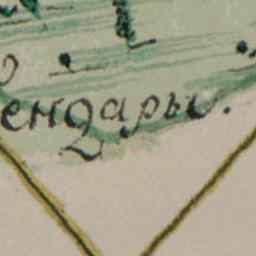 ендары.